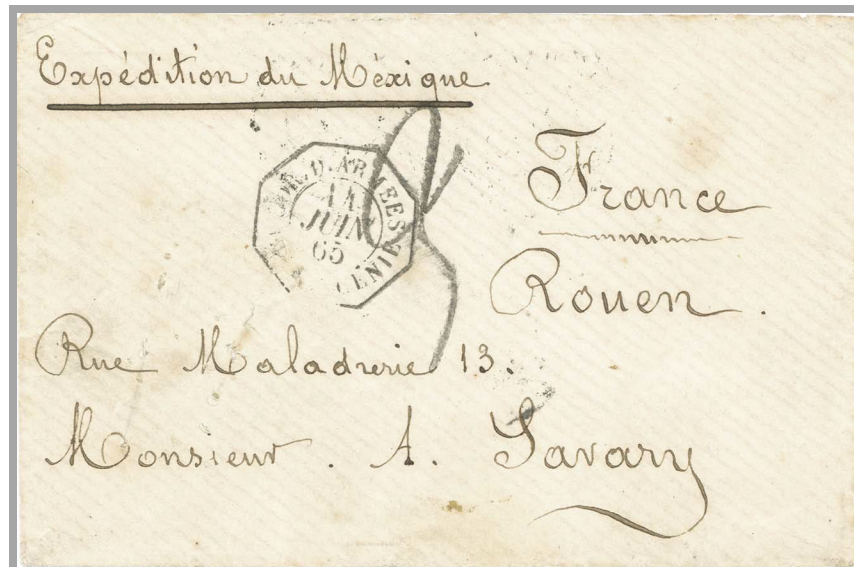 Expédition du Méxique
COR. D. ARMEES
14
JUIN
65
France
Rouen.
Rue Maladrerie 13.
Monsieur. A. Savary